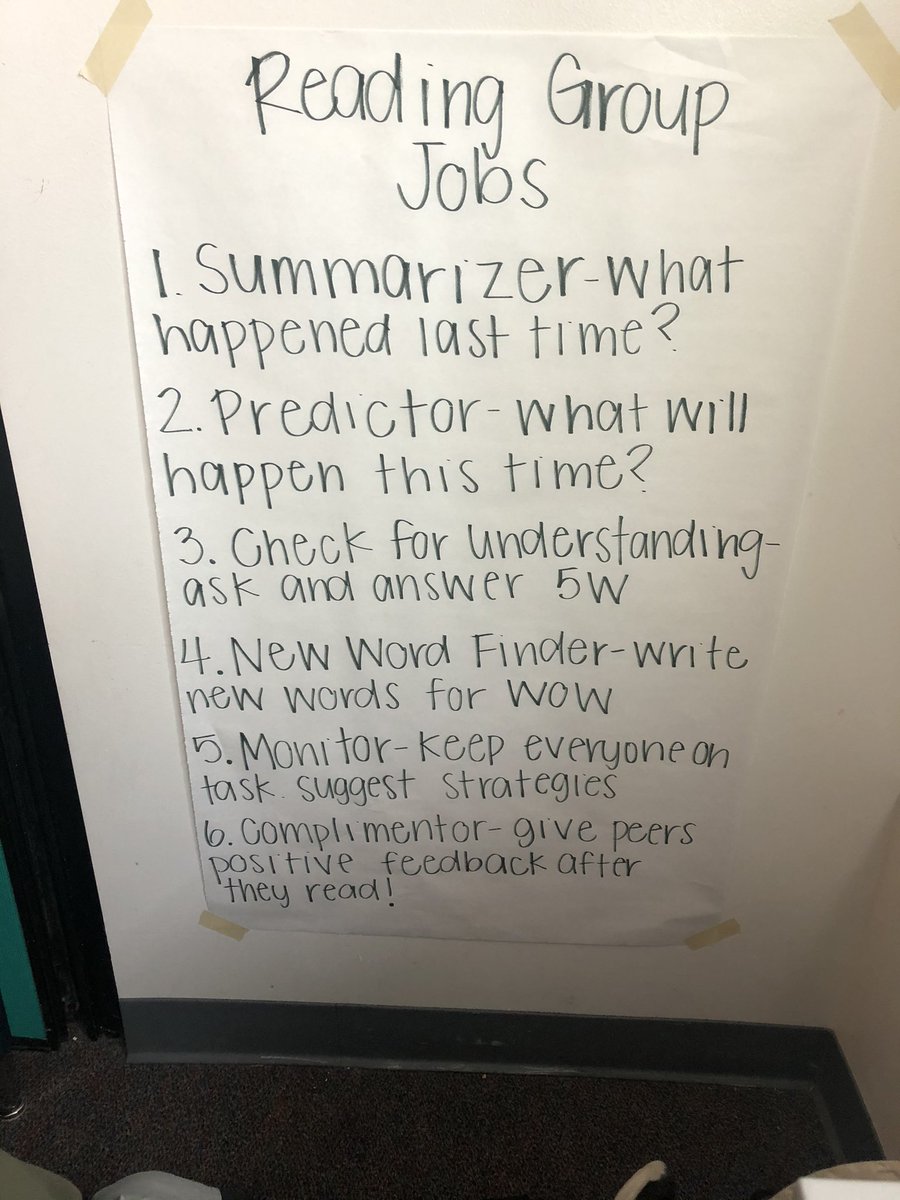 Reading Group
Jobs
1. Summarizer-what
happened last time?
2. Predictor-what will
happen this time?
3. Check for understanding-
ask and answer 5W
4. New Word Finder-write
new words for WOW
5. Monitor-keep everyone on
task. suggest strategies
6. Complimentor-give peers
positive feedback after
they read!